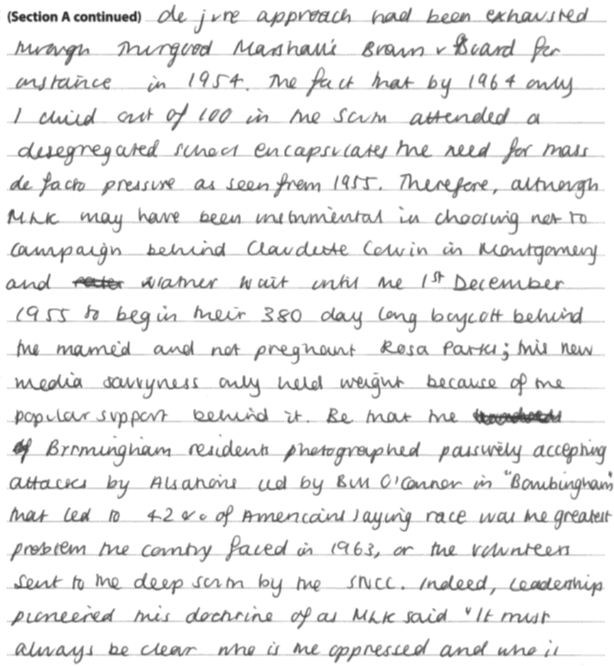 (Section A continued) de jure approach had been exhausted
through Thurgood Marshall's Brown v Board for
instance in 1954. The fact that by 1964 only
1 child out of 100 in the south attended a
desegregated school encapsulates the need for mass
de facto pressure as seen from 1955. Therefore, although
MLK may have been instrumental in choosing not to
campaign behind Claudette Colvin in Montgomery
and rather wait until the 1st December
1955 to begin their 380 day long boycott behind
the married and not pregnant Rosa Parks; this new
media savvyness only held weight because of the
popular support behind it. Be that the
of Birmingham residents photographed passively accepting
attacks by Alsations led by Bull O'Connor in "Bombingham"
that led to 42% of Americans saying race was the greatest
problem the country faced in 1963, or the volunteers
sent to the deep south by the SNCC. Indeed, leadership
pioneered this doctrine of as MLK said "It must
always be clear who is the oppressed and who is